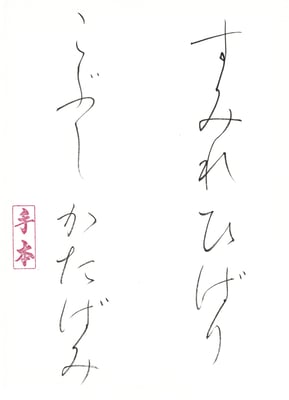 すみれ ひばり
こぶし かたばみ
手本